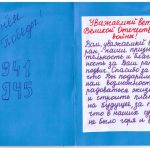 Победы
1941
1945
Уважаемый вет
Великой Отечеств
войны!
Вам, уважаемый в
ран, наши призна
тельность и благ
ность за Ваш рат
подвиг. Спасибо за
что Вы подарили
нам возможность
радоваться жизни
и строить планы
на будущее, за т
что в нашей с
не было горя и